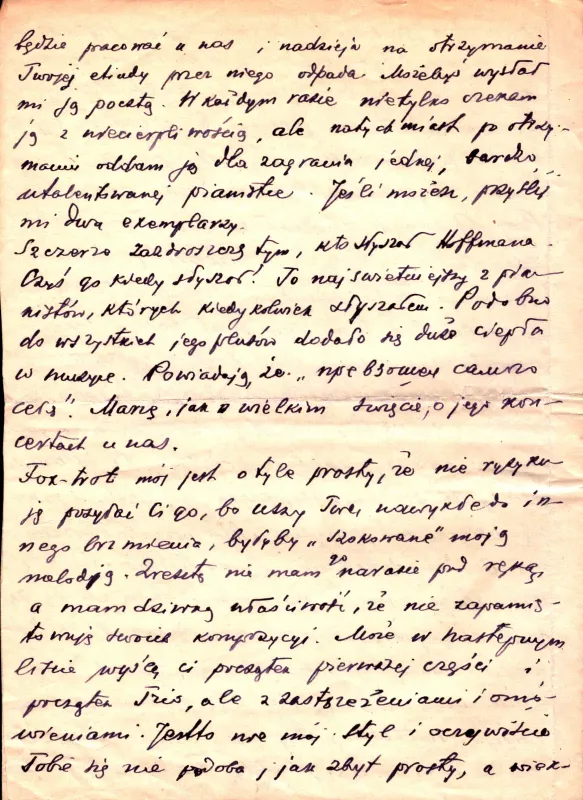 będzie pracować u nas i nadzieja na otrzymanie
Twojej etiudy przez niego odpada. Możebyś wysłał
mi ją pocztą. W każdym razie nietylko czekam
ją z niecierpliwością, ale natychmiast po otrzy-
maniu oddam ją dla zagrania jednej, bardzo
utalentowanej pianistce. Jeśli możesz, przyślij
mi dwa exemplarzy.
Szczerze zazdroszczę tym, kto słyszał Hoffmana.
Czyś go kiedy słyszał? To najświetniejszy z pia-
nistów, których kiedykolwiek słyszałem. Podobno
do wszystkich jego plusów dodało się duże ciepła
w muzyce. Powiadają, że „превзошел самого
себя". Marzę, jak o wielkim święcie, o jego kon-
certach u nas.
Fox-trot mój jest o tyle prosty, że nie ryzyku-
ję posyłać Ci go, bo uszy Twe, nawykłe do in-
nego brzmienia, byłyby „szokowane" moją
melodją. Zresztą nie mam go narazie pod ręką,
a mam dziwną właściwość, że nie zapamię-
towuję swoich kompozycyj. Może w następnym
liście wyślę ci początek pierwszej części i
początek Trio, ale z zastrzeżeniami i omó-
wieniami. Jestto nie mój styl i oczywiście
Tobie się nie podoba, jak zbyt prosty, a wiek-